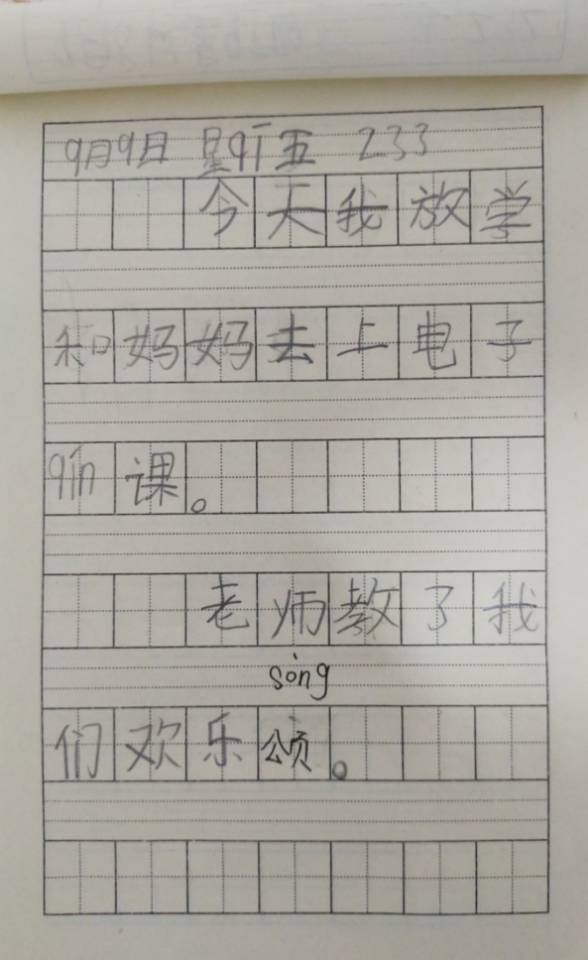 9月9日 星qī五 233
今天我放学
和妈妈去上电子
qín课。
老师教了我
sòng
们欢乐颂。